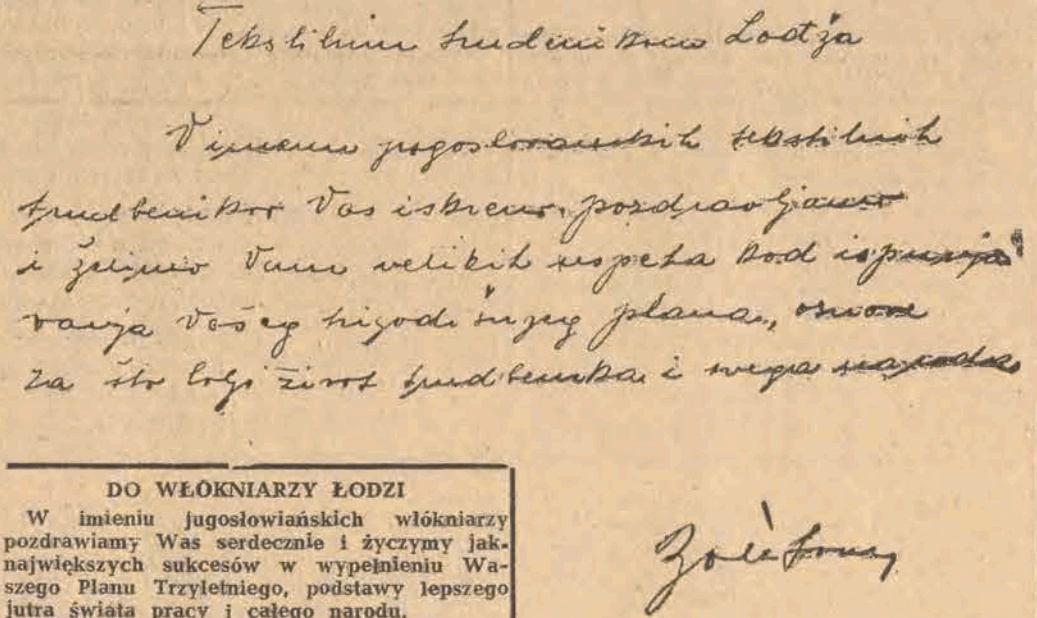 Tekstilnim trudenikom Lodža
V imenu jugoslovanskih tekstilnih
trudbenikov Vas iskreno pozdravljamo
i želimo Vam velikih uspeha kod ispunja
vanja Vašeg trigodišnjeg plana, osnove
za što bolji život trudbenika i svega naroda
DO WŁÓKNIARZY ŁODZI
W imieniu jugosłowiańskich włókniarzy
pozdrawiamy Was serdecznie i życzymy jak-
największych sukcesów w wypełnieniu Wa-
szego Planu Trzyletniego, podstawy lepszego
jutra świata pracy i całego narodu.